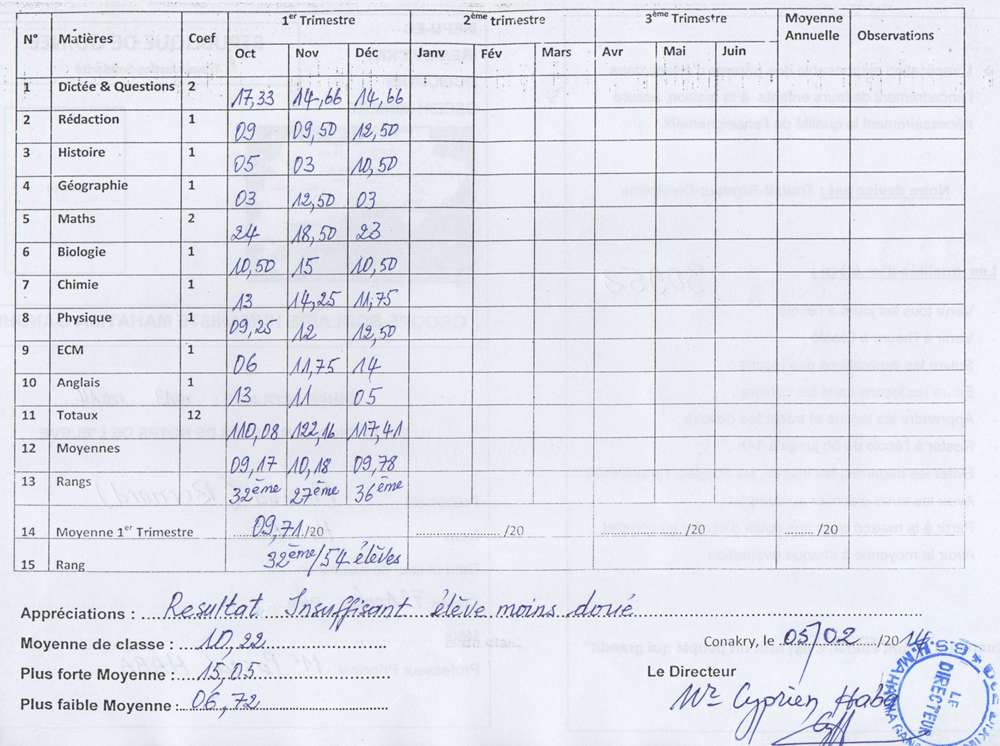 N° Matières Coef 1er Trimestre 2ème trimestre 3ème Trimestre Moyenne Annuelle Observations
Oct Nov Déc Janv Fév Mars Avr Mai Juin
1 Dictée & Questions 2 17,33 14,66 14,66
2 Rédaction 1 09 09,50 12,50
3 Histoire 1 05 03 10,50
4 Géographie 1 03 12,50 03
5 Maths 2 24 18,50 23
6 Biologie 1 10,50 15 10,50
7 Chimie 1 13 14,25 11,75
8 Physique 1 09,25 12 12,50
9 ECM 1 06 11,75 14
10 Anglais 1 13 11 05
11 Totaux 12 110,08 122,16 117,41
12 Moyennes 09,17 10,18 09,78
13 Rangs 32ème 27ème 36ème
14 Moyenne 1er Trimestre 09,71/20 /20 /20
15 Rang 32ème/54 élèves
Appréciations : Resultat Insuffisant élève moins doué
Moyenne de classe : 10,22
Conakry, le 05/02 /2014
Plus forte Moyenne : 15,05
Le Directeur
Plus faible Moyenne : 06,72
Mr Cyprien Haba
LE DIRECTEUR